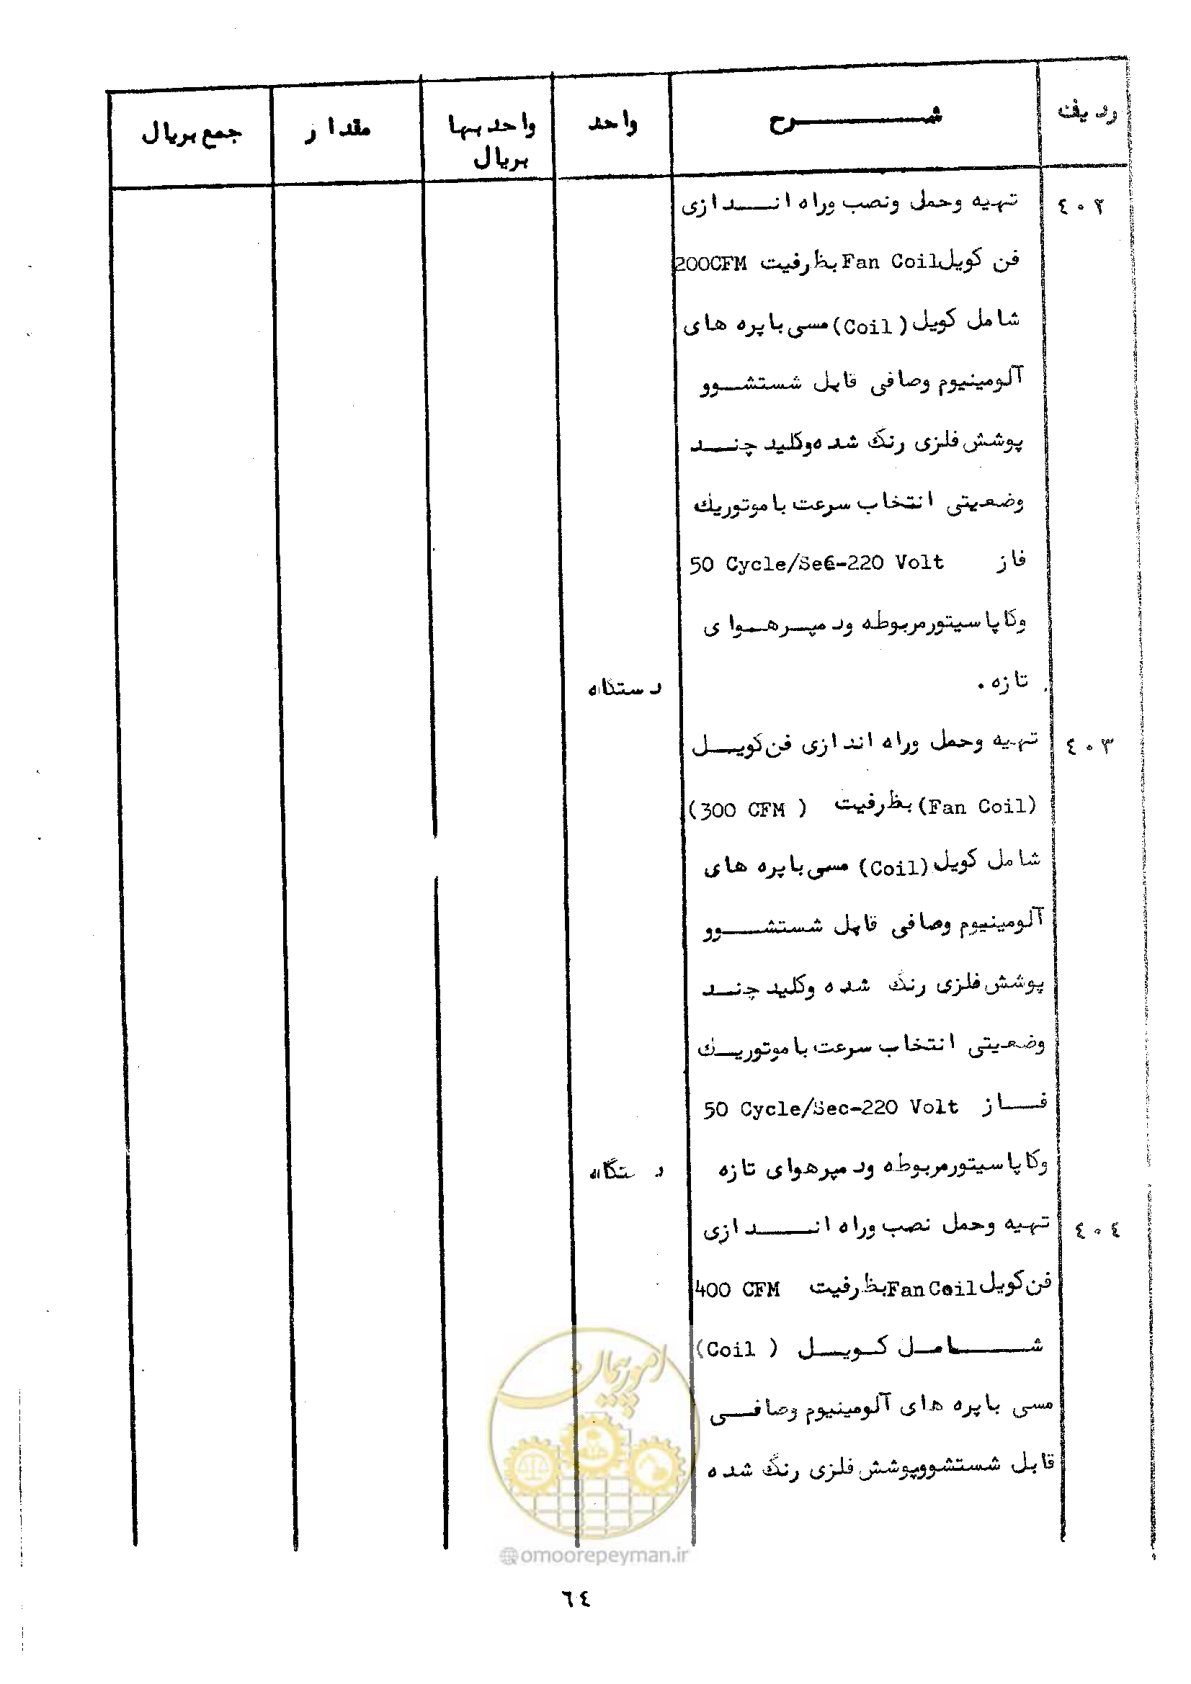 ردیف شـــــرح واحد واحد بها مقدار جمع بریال
بریال
۴۰۲ تهیه وحمل ونصب وراه انـــدازی
فن کویل Fan Coil بظرفیت 200CFM
شامل کویل (Coil) مسی با پره های
آلومینیوم وصافی قابل شستشـــوو
پوشش فلزی رنگ شده وکلید چنـــد
وضعیتی انتخاب سرعت با موتوریك
فاز 50 Cycle/Sec-220 Volt
وکاپاسیتور مربوطه ودمپـرهـوای
تازه . دستگاه
۴۰۳ تهیه وحمل وراه اندازی فن کویـــل
(Fan Coil) بظرفیت (300 CFM)
شامل کویل (Coil) مسی با پره های
آلومینیوم وصافی قابل شستشـــوو
پوشش فلزی رنگ شده وکلید چنـــد
وضعیتی انتخاب سرعت با موتوریـــك
فـــاز 50 Cycle/Sec-220 Volt
وکاپاسیتور مربوطه ودمپرهوای تازه دستگاه
۴۰۴ تهیه وحمل نصب وراه انـــــدازی
فن کویل Fan Coil بظرفیت 400 CFM
شـــــامـل کـویـــل (Coil)
مسی با پره های آلومینیوم وصافـــی
قابل شستشووپوشش فلزی رنگ شده
امور پیمان
@omoorepeyman.ir
۶۴